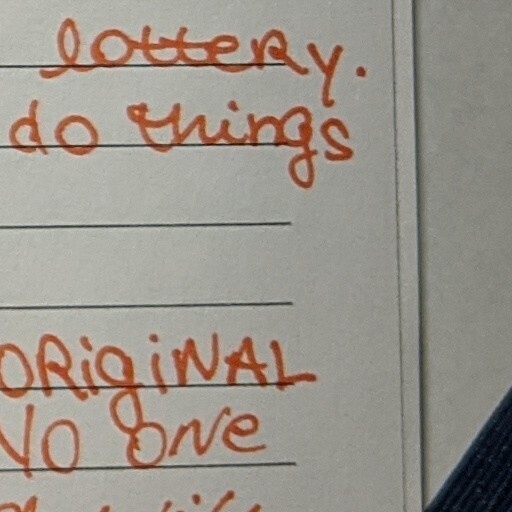 lotteRy.
do things
ORigiNAL
NO ONe